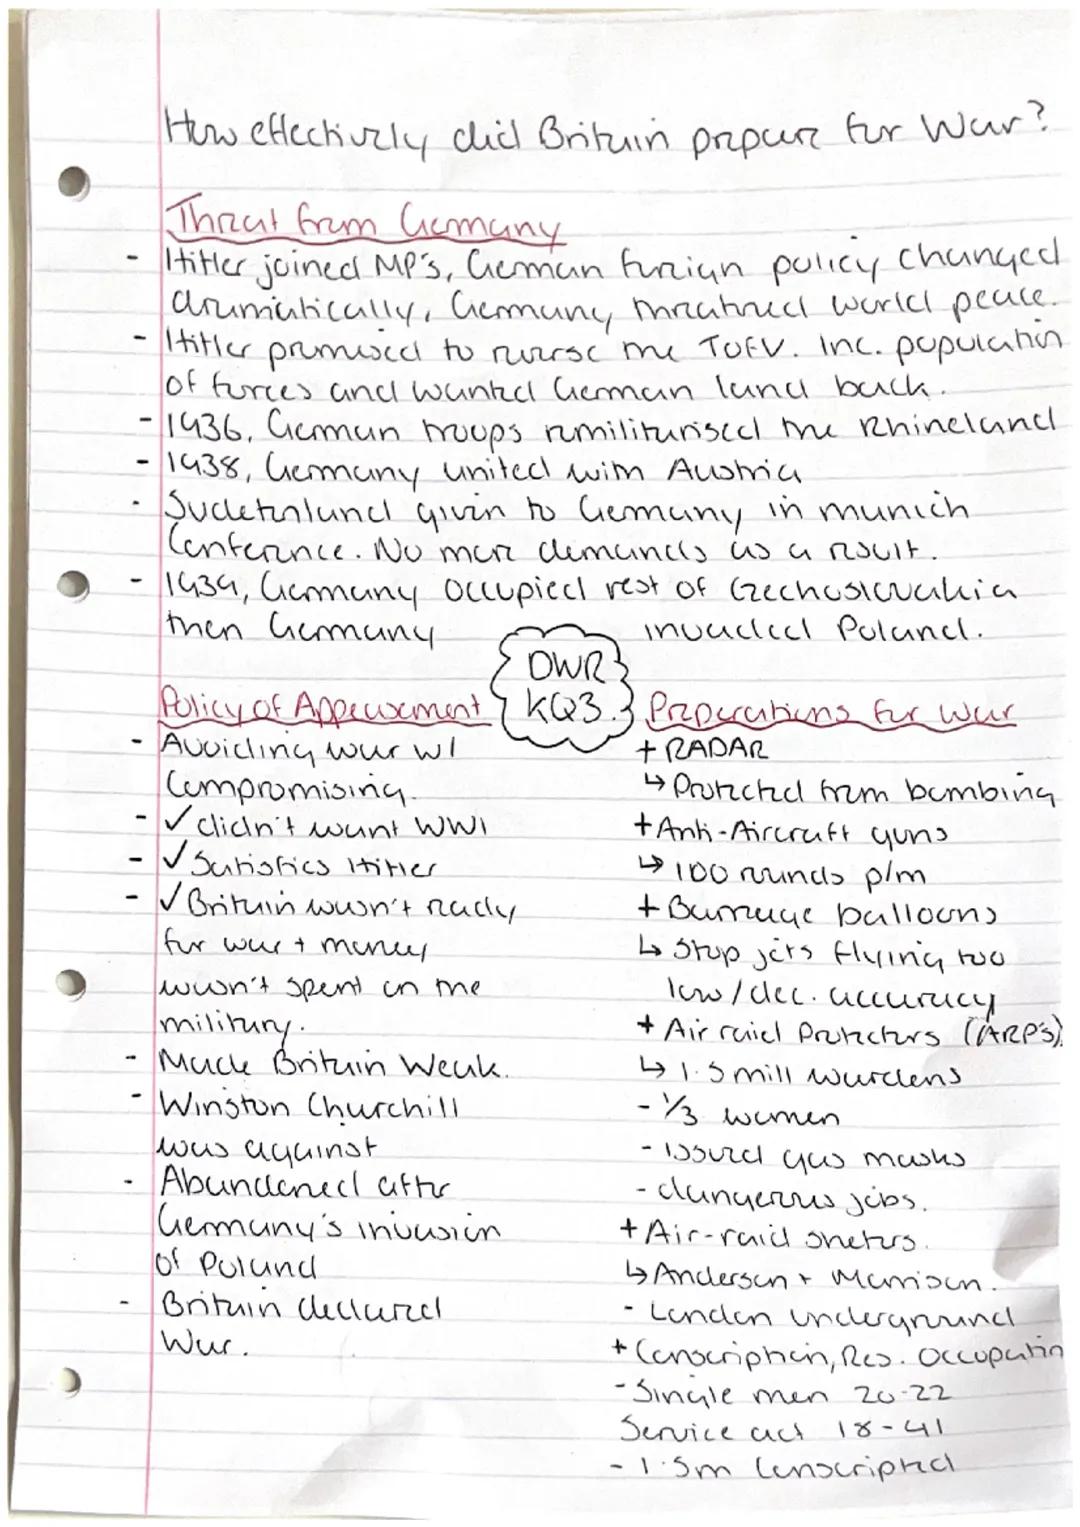 How effectively did Britain prepare for War?
Threat from Germany
- Hitler joined MP's, German foreign policy changed
dramatically, Germany threatned world peace.
- Hitler promised to reverse the TOFV. Inc. population
of forces and wanted German land back.
- 1936, German troops remilitarised the Rhineland
- 1938, Germany united with Austria
- Sudetenland given to Germany in munich
Conference. No more demands as a result.
- 1939, Germany occupied rest of Czechoslovakia
then Germany invaded Poland.
DWR
KQ3.
Policy of Appeasement
- Avoiding war w/
compromising.
- ✓ didn't want WW1
- ✓ Satisfies Hitler
- ✓ Britain wasn't ready
for war + money
wasn't spent on the
military.
- Made Britain Weak.
- Winston Churchill
was against
- Abandoned after
Germany's invasion
of Poland
- Britain declared
War.
Preparations for war
+ RADAR
↳ Protected from bombing
+ Anti-Aircraft guns
↳ 100 rounds p/m
+ Barrage balloons
↳ Stop jets flying too
low/dec. accuracy
+ Air raid Protectors (ARP's)
↳ 1.5 mill wardens
- 1/3 women
- issued gas masks
- dangerous jobs.
+ Air-raid shelters.
↳ Anderson + Morrison.
- London underground
+ Conscription, Res. Occupation
- Single men 20-22
Service act 18-41
- 1.5m Conscripted